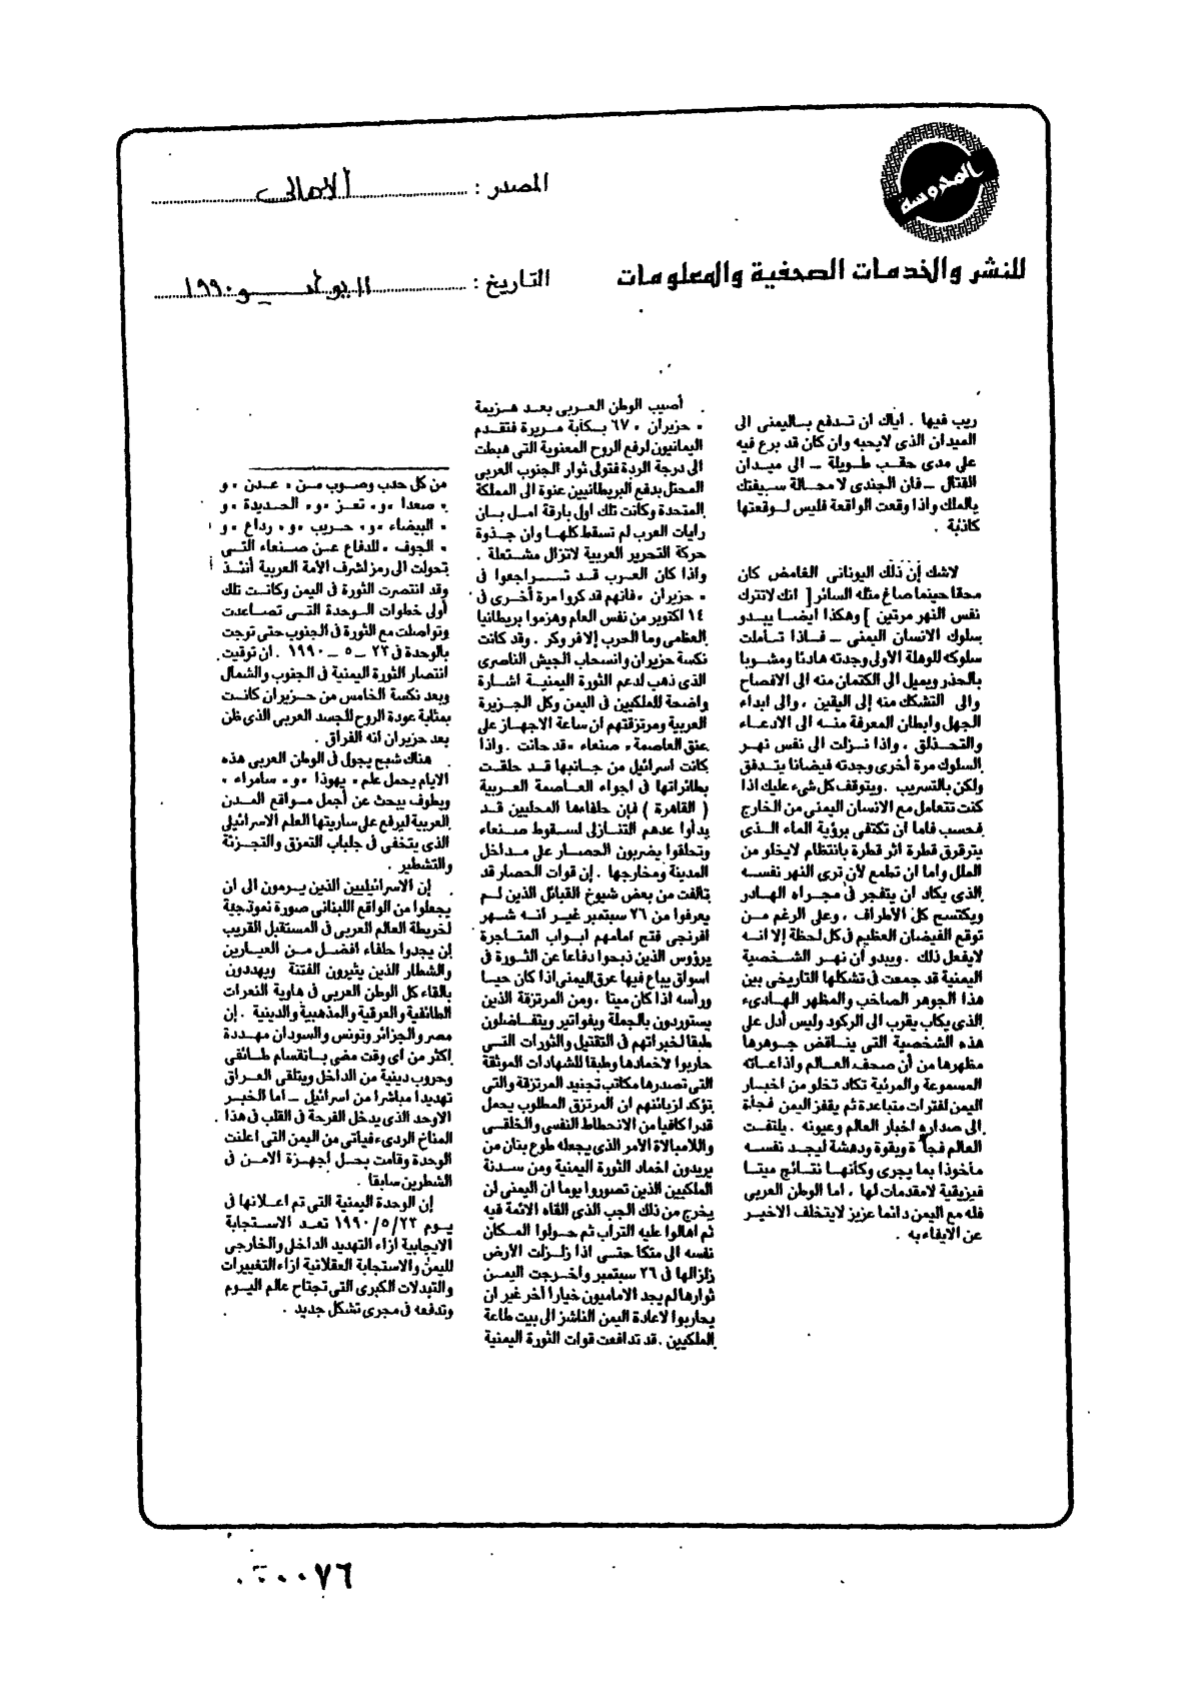 المحروسة
للنشر والخدمات الصحفية والمعلومات
المصدر : الأهالى
التاريخ : ١١ يوليو ١٩٩٠
ريب فيها . اياك ان تدفع باليمنى الى
الميدان الذى لايحبه وان كان قد برع فيه
على مدى حقب طويلة ــ الى ميدان
القتال ــ فان الجندى لا محالة سيفتك
بالملك واذا وقعت الواقعة فليس لوقعتها
كاذبة .
لاشك أن ذلك اليونانى الغامض كان
محقا حينما صاغ مثله السائر [ انك لاتترك
نفس النهر مرتين ] وهكذا ايضا يبدو
سلوك الانسان اليمنى ــ فاذا تأملت
سلوكه للوهلة الأولى وجدته هادئا ومشوبا
بالحذر ويميل الى الكتمان منه الى الافصاح
والى التشكك منه إلى اليقين ، والى ابداء
الجهل وابطان المعرفة منه الى الادعاء
والتحذلق ، واذا نزلت الى نفس نهر
السلوك مرة أخرى وجدته فيضانا يتدفق
ولكن بالتسريب . ويتوقف كل شىء عليك اذا
كنت تتعامل مع الانسان اليمنى من الخارج
فحسب فاما ان تكتفى برؤية الماء الذى
يترقرق قطرة اثر قطرة بانتظام لايخلو من
الملل واما ان تطمع لأن ترى النهر نفسه
الذى يكاد ان يتفجر فى مجراه الهادر
ويكتسح كل الأطراف ، وعلى الرغم من
توقع الفيضان العظيم فى كل لحظة إلا انه
لايفعل ذلك . ويبدو أن نهر الشخصية
اليمنية قد جمعت فى تشكلها التاريخى بين
هذا الجوهر الصاخب والمظهر الهادىء
الذى يكاب يقرب الى الركود وليس أدل على
هذه الشخصية التى يناقض جوهرها
مظهرها من أن صحف العالم واذاعاته
المسموعة والمرئية تكاد تخلو من اخبار
اليمن لفترات متباعدة ثم يقفز اليمن فجأة
الى صداره اخبار العالم وعيونه . يلتفت
العالم فجأة وبقوة ودهشة ليجد نفسه
مأخوذا بما يجرى وكأنها نتائج ميتا
فيزيقية لامقدمات لها ، اما الوطن العربى
فله مع اليمن دائما عزيز لايتخلف الاخير
عن الايفاء به .
أصيب الوطن العربى بعد هزيمة
« حزيران » ٦٧ بكآبة مريرة فتقدم
اليمانيون لرفع الروح المعنوية التى هبطت
الى درجة الردة فتولى ثوار الجنوب العربى
المحتل بدفع البريطانيين عنوة الى المملكة
المتحدة وكانت تلك اول بارقة امل بان
رايات العرب لم تسقط كلها وان جذوة
حركة التحرير العربية لاتزال مشتعلة .
واذا كان العرب قد تراجعوا فى
« حزيران » فانهم قد كروا مرة أخرى فى
١٤ اكتوبر من نفس العام وهزموا بريطانيا
العظمى وما الحرب إلا فر وكر . وقد كانت
نكسة حزيران وانسحاب الجيش الناصرى
الذى ذهب لدعم الثورة اليمنية اشارة
واضحة للملكيين فى اليمن وكل الجزيرة
العربية ومرتزقتهم ان ساعة الاجهاز على
عنق العاصمة « صنعاء » قد حانت . واذا
كانت اسرائيل من جانبها قد حلقت
بطائراتها فى اجواء العاصمة العربية
( القاهرة ) فإن حلفاءها المحليين قد
بدأوا عدهم التنازلى لسقوط صنعاء
وتحلقوا يضربون الحصار على مداخل
المدينة ومخارجها . إن قوات الحصار قد
تألفت من بعض شيوخ القبائل الذين لم
يعرفوا من ٢٦ سبتمبر غير انه شهر
افرنجى فتح امامهم ابواب المتاجرة
برؤوس الذين ذبحوا دفاعا عن الثورة فى
اسواق يباع فيها عرق اليمنى اذا كان حيا
ورأسه اذا كان ميتا ، ومن المرتزقة الذين
يستوردون بالجملة وبفواتير ويتفاضلون
طبقا لخبراتهم فى التقتيل والثورات التى
حاربوا لاخمادها وطبقا للشهادات الموثقة
التى تصدرها مكاتب تجنيد المرتزقة والتى
تؤكد لزبائنهم ان المرتزق المطلوب يحمل
قدرا كافيا من الانحطاط النفسى والخلقى
واللامبالاة الأمر الذى يجعله طوع بنان من
يريدون اخماد الثورة اليمنية ومن سدنة
الملكيين الذين تصوروا يوما ان اليمنى لن
يخرج من ذلك الجب الذى القاه الائمة فيه
ثم اهالوا عليه التراب ثم حولوا المكان
نفسه الى متكا حتى اذا زلزلت الأرض
زلزالها فى ٢٦ سبتمبر وأخرجت اليمن
ثوارها لم يجد الاماميون خيارا آخر غير ان
يحاربوا لاعادة اليمن الناشز الى بيت طاعة
الملكيين . قد تدافعت قوات الثورة اليمنية
من كل حدب وصوب من « عدن » و
« صعدا » و« تعز » و« الحديدة » و
« البيضاء » و« حريب » و« رداع » و
« الجوف » للدفاع عن صنعاء التى
تحولت الى رمز لشرف الأمة العربية أنئذ
وقد انتصرت الثورة فى اليمن وكانت تلك
أولى خطوات الوحدة التى تصاعدت
وتواصلت مع الثورة فى الجنوب حتى توجت
بالوحدة فى ٢٣ ــ ٥ ــ ١٩٩٠ . ان توقيت
انتصار الثورة اليمنية فى الجنوب والشمال
وبعد نكسة الخامس من حزيران كانت
بمثابة عودة الروح للجسد العربى الذى ظن
بعد حزيران انه الفراق .
هناك شبح يجول فى الوطن العربى هذه
الايام يحمل علم « يهوذا » و« سامراء »
ويطوف يبحث عن أجمل مواقع المدن
العربية ليرفع على ساريتها العلم الاسرائيلى
الذى يتخفى فى جلباب التمزق والتجزئة
والتشطير .
إن الاسرائيليين الذين يرمون الى ان
يجعلوا من الواقع اللبنانى صورة نموذجية
لخريطة العالم العربى فى المستقبل القريب
لن يجدوا حلفاء افضل من العيارين
والشطار الذين يثيرون الفتنة ويهددون
بالقاء كل الوطن العربى فى هاوية النعرات
الطائفية والعرقية والمذهبية والدينية . إن
مصر والجزائر وتونس والسودان مهددة
اكثر من اى وقت مضى بانقسام طائفى
وحروب دينية من الداخل ويتلقى العراق
تهديدا مباشرا من اسرائيل ــ اما الخبر
الاوحد الذى يدخل الفرحة فى القلب فى هذا
المناخ الردىء فياتى من اليمن التى اعلنت
الوحدة وقامت بحل اجهزة الامن فى
الشطرين سابقا .
إن الوحدة اليمنية التى تم اعلانها فى
يوم ١٩٩٠/٥/٢٣ تعد الاستجابة
الايجابية ازاء التهديد الداخلى والخارجى
لليمن والاستجابة العقلانية ازاء التغييرات
والتبدلات الكبرى التى تجتاح عالم اليوم
وتدفعه فى مجرى تشكل جديد .